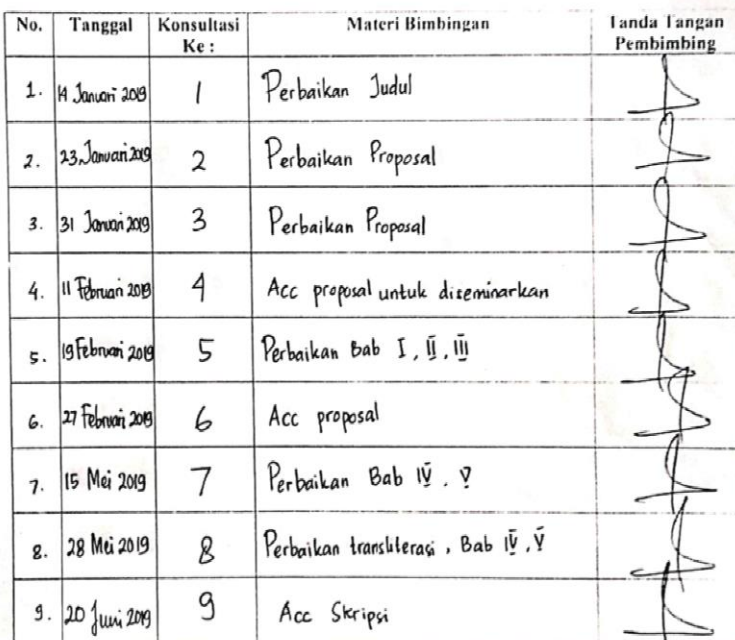 No. Tanggal Konsultasi Ke : Materi Bimbingan Tanda Tangan Pembimbing
1. 14 Januari 2019 1 Perbaikan Judul
2. 23 Januari 2019 2 Perbaikan Proposal
3. 31 Januari 2019 3 Perbaikan Proposal
4. 11 Februari 2019 4 Acc proposal untuk diseminarkan
5. 19 Februari 2019 5 Perbaikan Bab I, II, III
6. 27 Februari 2019 6 Acc proposal
7. 15 Mei 2019 7 Perbaikan Bab IV, V
8. 28 Mei 2019 8 Perbaikan transliterasi, Bab IV, V
9. 20 Juni 2019 9 Acc Skripsi